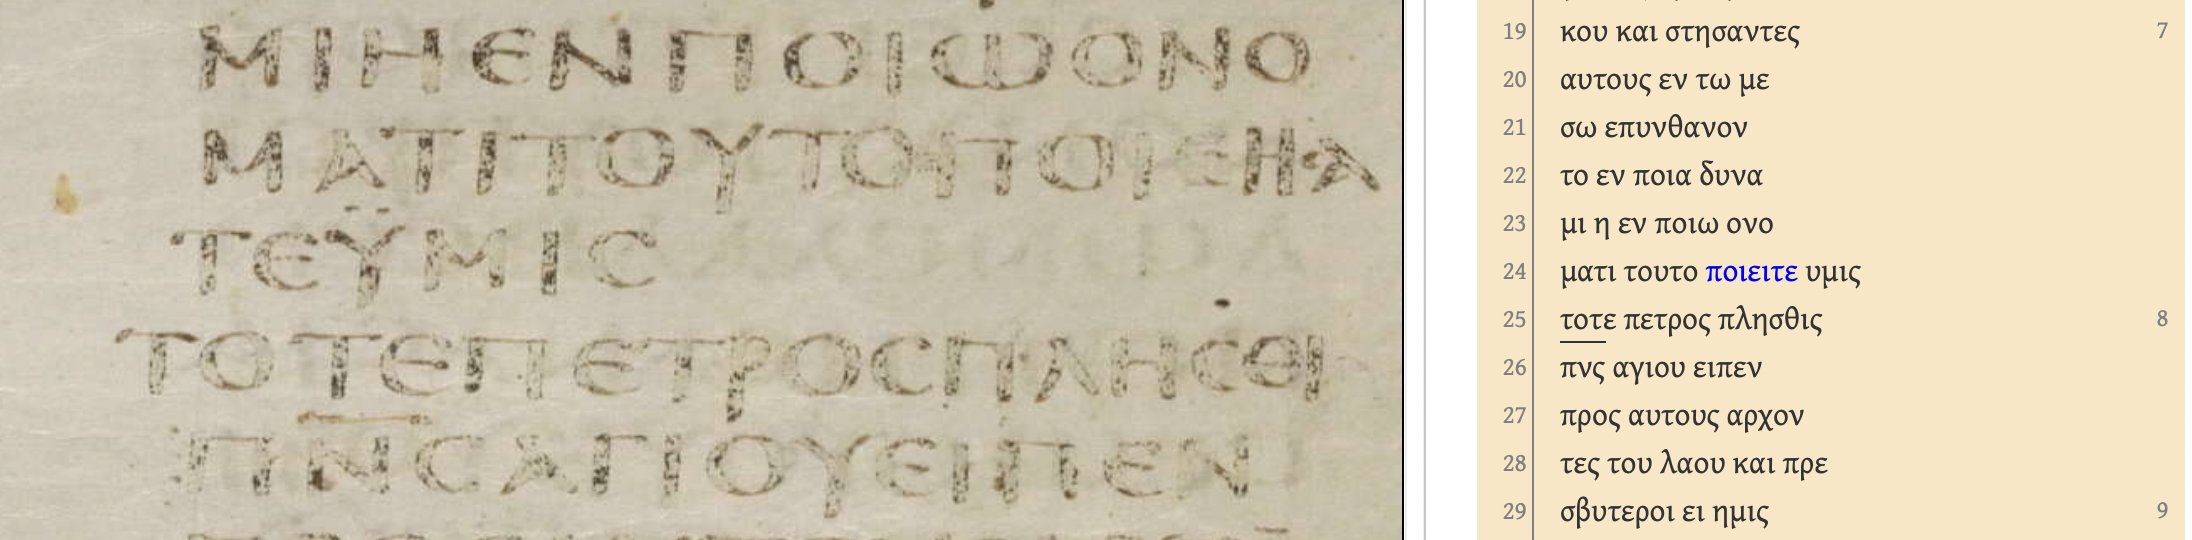 ΜΙΗΕΝΠΟΙΩΟΝΟ
ΜΑΤΙΤΟΥΤΟΠΟΙΕΗΑ
ΤΕΫΜΙϹ
ΤΟΤΕΠΕΤΡΟϹΠΛΗϹΘΙ
ΠΝϹΑΓΙΟΥΕΙΠΕΝ
19 κου και στησαντες 7
20 αυτους εν τω με
21 σω επυνθανον
22 το εν ποια δυνα
23 μι η εν ποιω ονο
24 ματι τουτο ποιειτε υμις
25 τοτε πετρος πλησθις 8
26 πνς αγιου ειπεν
27 προς αυτους αρχον
28 τες του λαου και πρε
29 σβυτεροι ει ημις 9